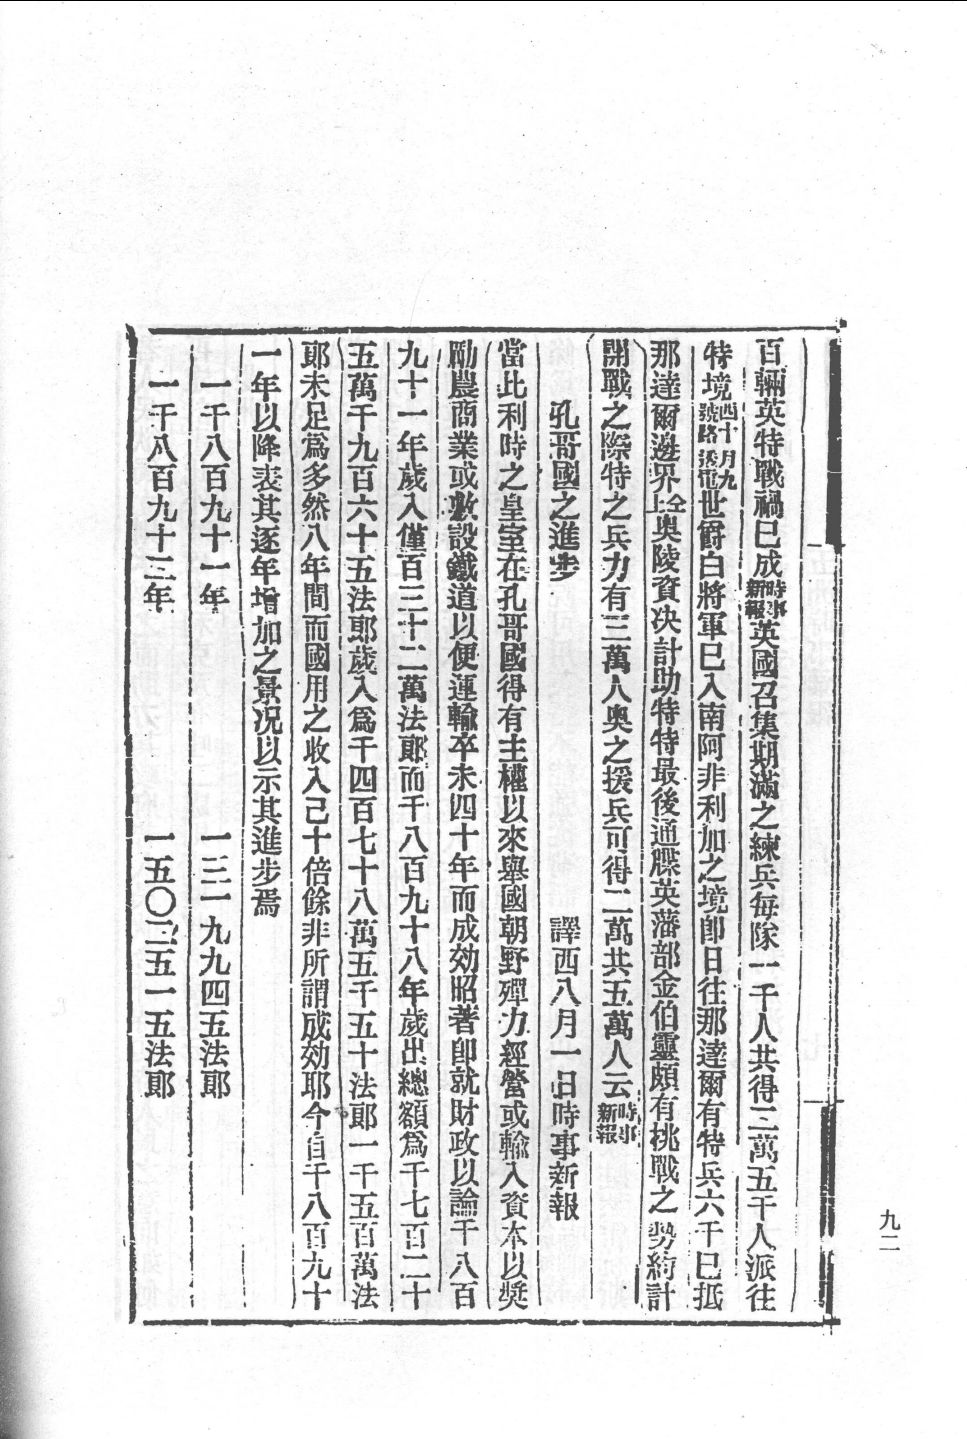 百輛英特戰禍已成時事新報英國召集期滿之練兵每隊一千人共得三萬五千人派往
特境四十號路九月透電世爵白將軍已入南阿非利加之境卽日往那達爾有特兵六千已抵
那達爾邊界仝上奥陵資决計助特特最後通牒英藩部金伯靈頗有挑戰之勢約計
開戰之際特之兵力有三萬人奥之援兵可得二萬共五萬人云時事新報
孔哥國之進步　譯西八月一日時事新報
當此利時之皇室在孔哥國得有主權以來舉國朝野殫力經營或輸入資本以奬
勵農商業或敷設鐵道以便運輸卒未四十年而成効昭著卽就財政以論千八百
九十一年歲入僅百三十二萬法郎而千八百九十八年歲出總額爲千七百二十
五萬千九百六十五法郎歲入爲千四百七十八萬五千五十法郎一千五百萬法
郎未足爲多然八年間而國用之收入已十倍餘非所謂成効耶今自千八百九十
一年以降表其逐年增加之景况以示其進步焉
一千八百九十一年　一三一九九四五法郎
一千八百九十二年　一五〇三五一五法郎
九二